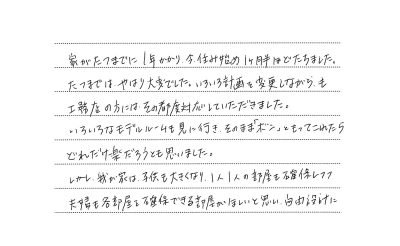 家がたつまでに1年かかり、今、住み始め1ヶ月半ほどたちました。
たつまでは、やはり大変でした。いろいろ計画を変更しながらも
工務店の方には、その都度対応していただきました。
いろいろなモデルルームも見に行き、そのまま「ボン」ともってこれたら
どれだけ楽だろうとも思いました。
しかし、我が家は、子供も大きくなり、1人1人の部屋も確保しつつ
夫婦も各部屋を確保できる部屋がほしいと思い、自由設計に